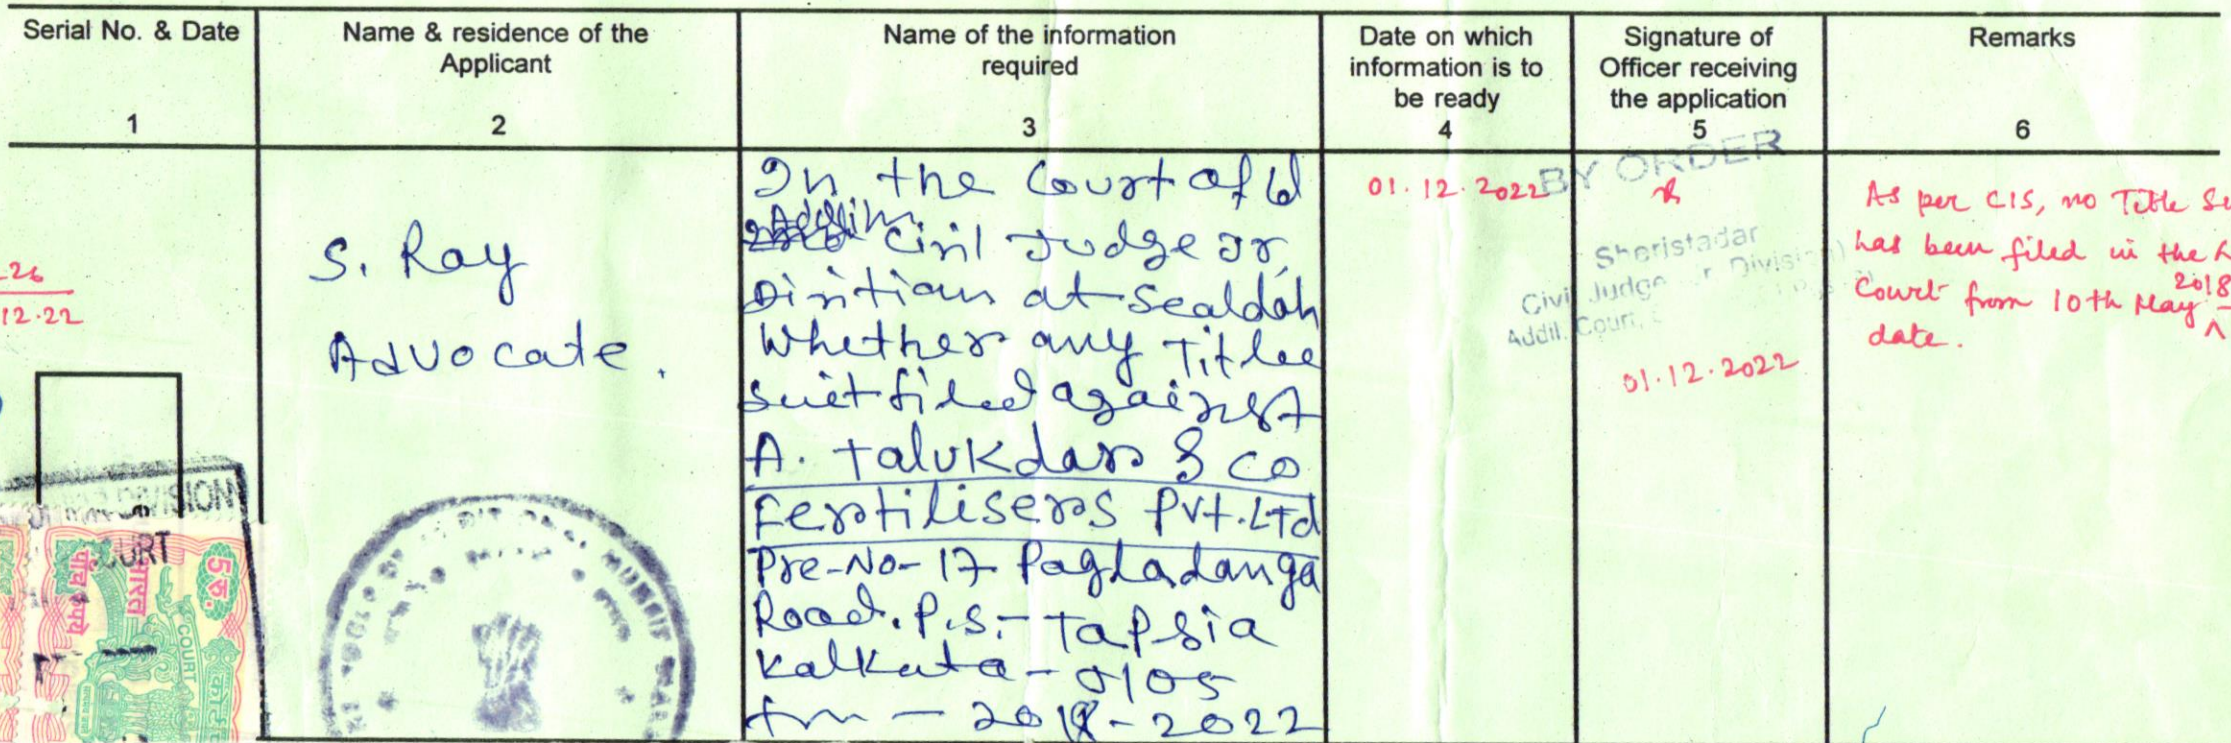 Serial No. & Date
1
Name & residence of the
Applicant
2
Name of the information
required
3
Date on which
information is to
be ready
4
Signature of
Officer receiving
the application
5
Remarks
6
26
12.22
S. Ray
Advocate.
In the Court of Ld
Civil Judge Jr.
at Sealdah
Whether any Title
suit filed against
A. Talukdar & Co
Fertilisers Pvt. Ltd
Pre-No-17 Pagladanga
Road. P.S.- Tapsia
Kalkata - 0105
2022
01.12.2022
BY ORDER
Sheristadar
Civil Judge Jr. Division)
Addl. Court,
01.12.2022
As per CIS, no Title
has been filed in the
Court from 10th May 2018
date.
DIVISION
COURT
भारत
पाँच रुपये
5रु.
COURT
MUNSIF